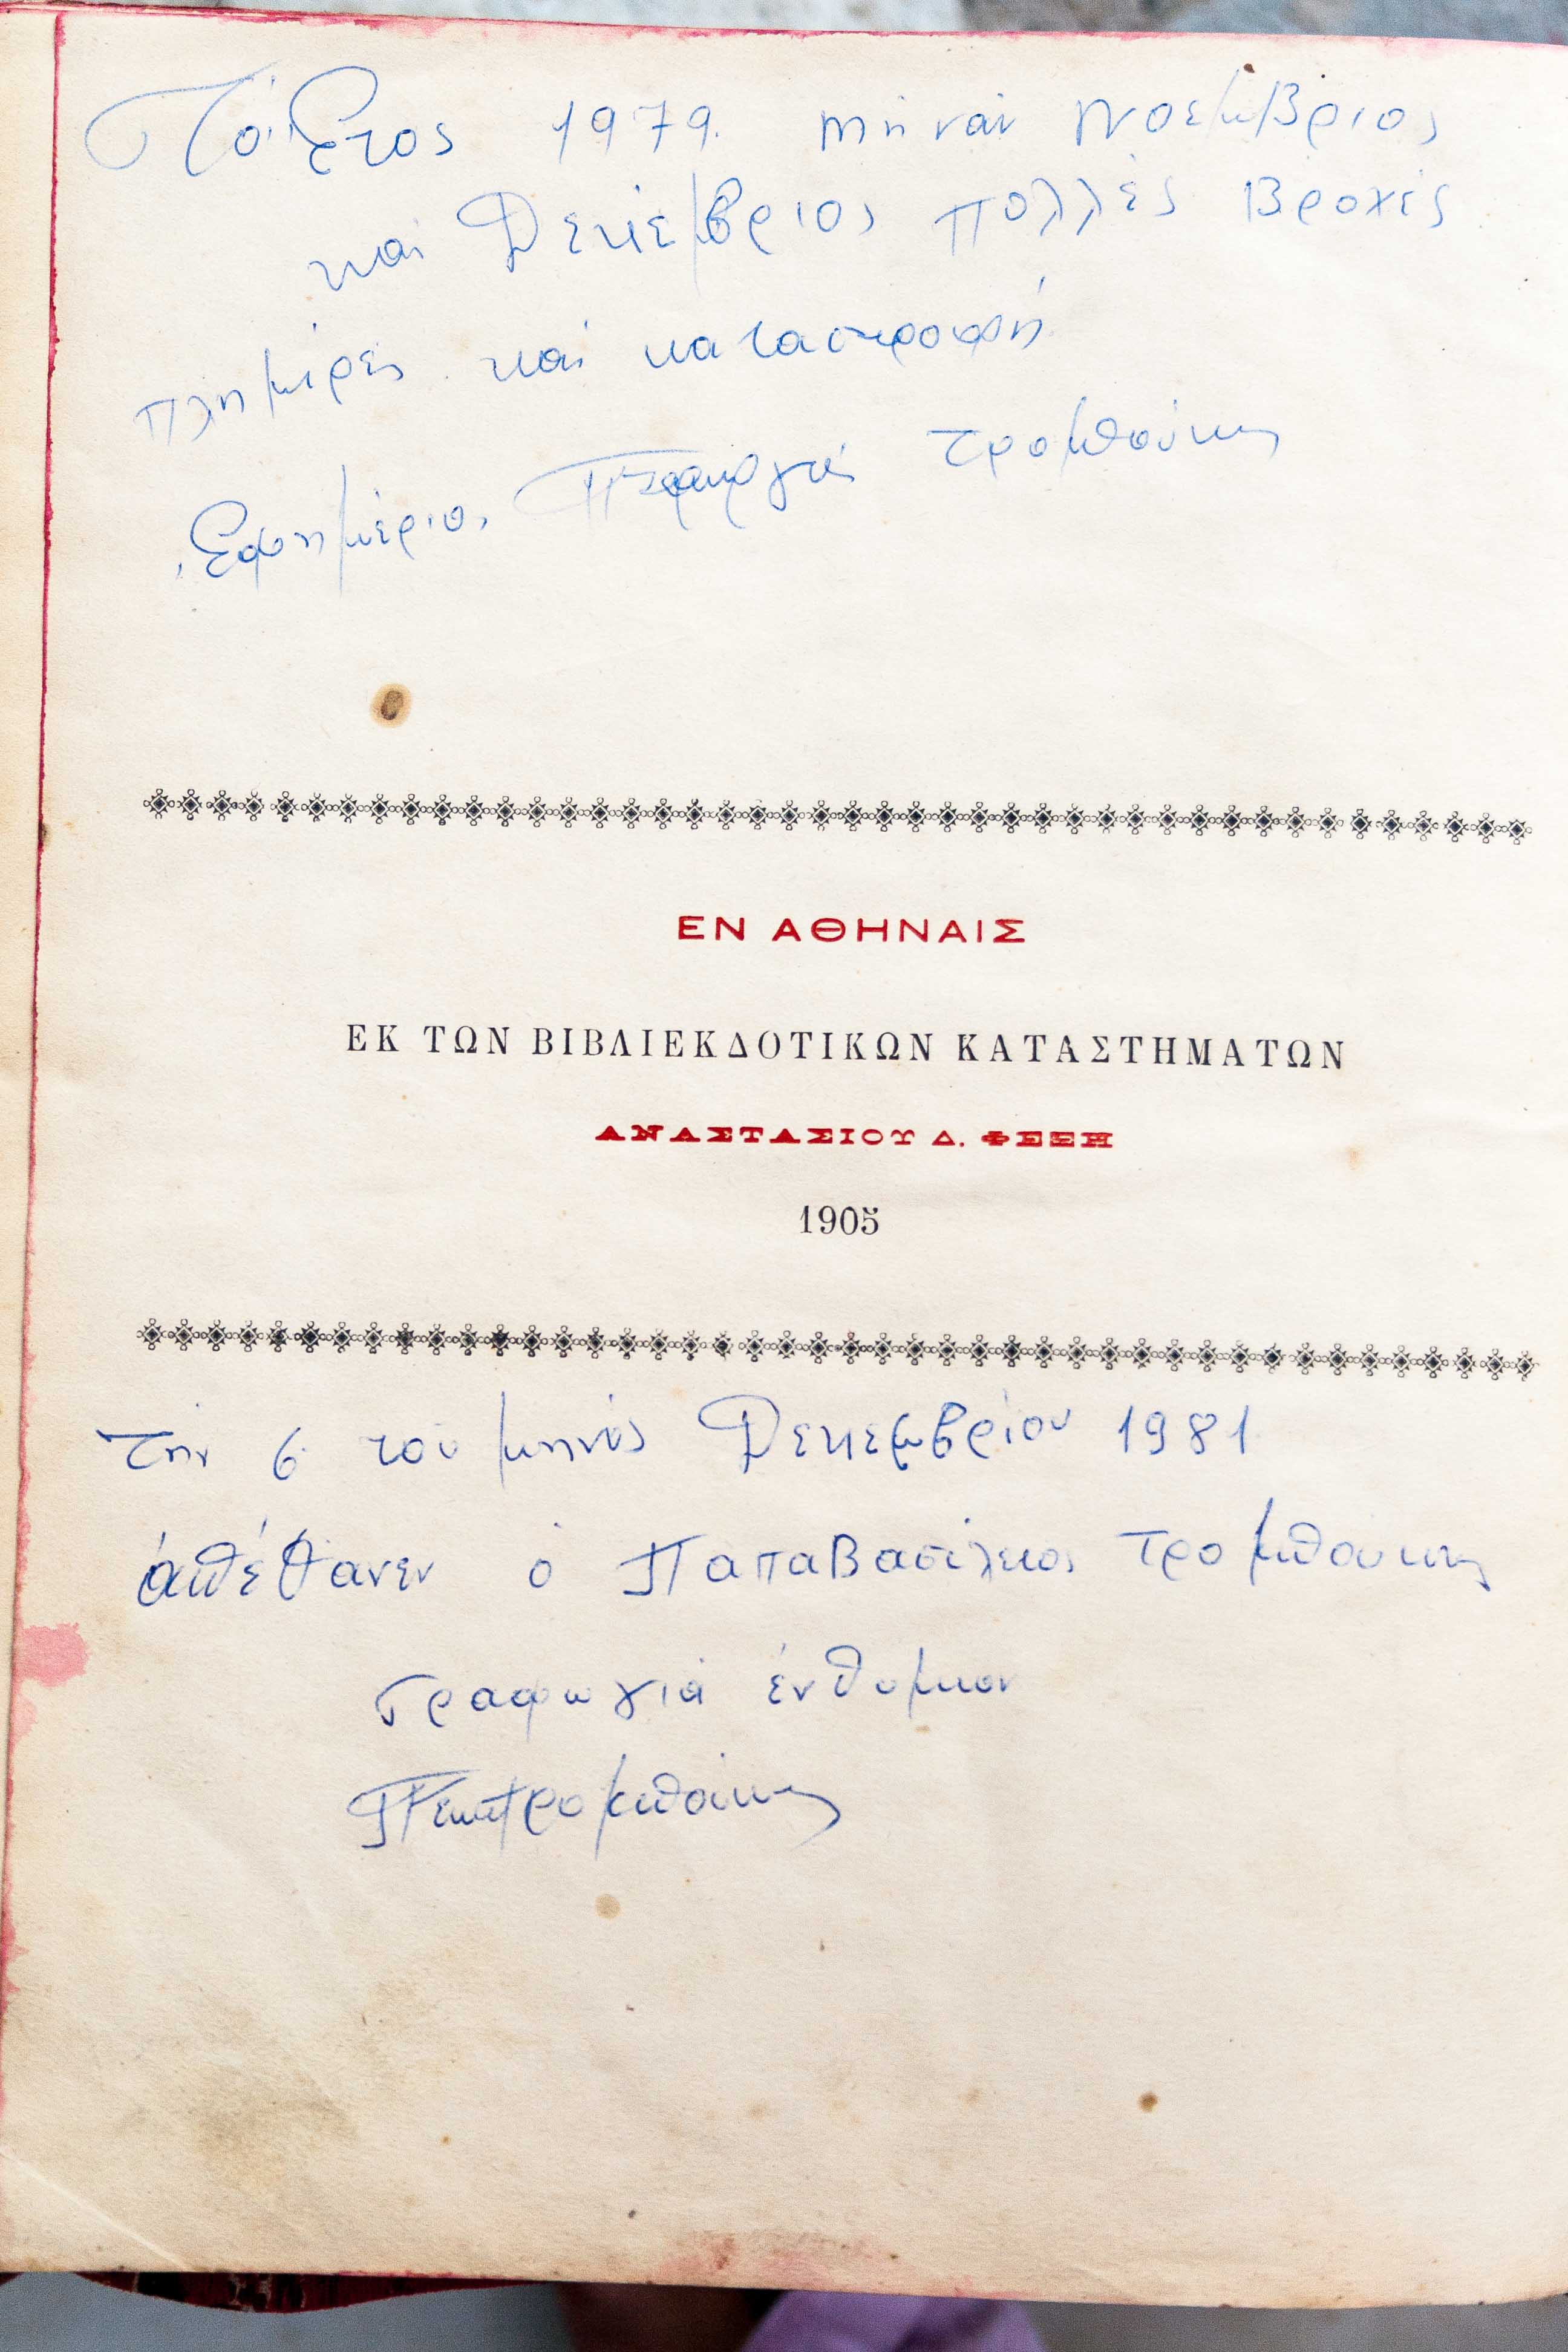 Τό Ἔτος 1979. μηναν Νοεμβριος
και Δεκέμβριος πολλές Βροχές
πλημιρες και καταστροφή
Ἐφημέριος Τρομπούκης
ΕΝ ΑΘΗΝΑΙΣ
ΕΚ ΤΩΝ ΒΙΒΛΙΕΚΔΟΤΙΚΩΝ ΚΑΤΑΣΤΗΜΑΤΩΝ
ΑΝΑΣΤΑΣΙΟΥ Δ. ΦΕΞΗ
1905
την 6 του μηνός Δεκεμβρίου 1981
ἀπέθανεν ὁ ΠαπαΒασίλειος Τρομπουκης
Γραφω γιά ἐνθυμιον